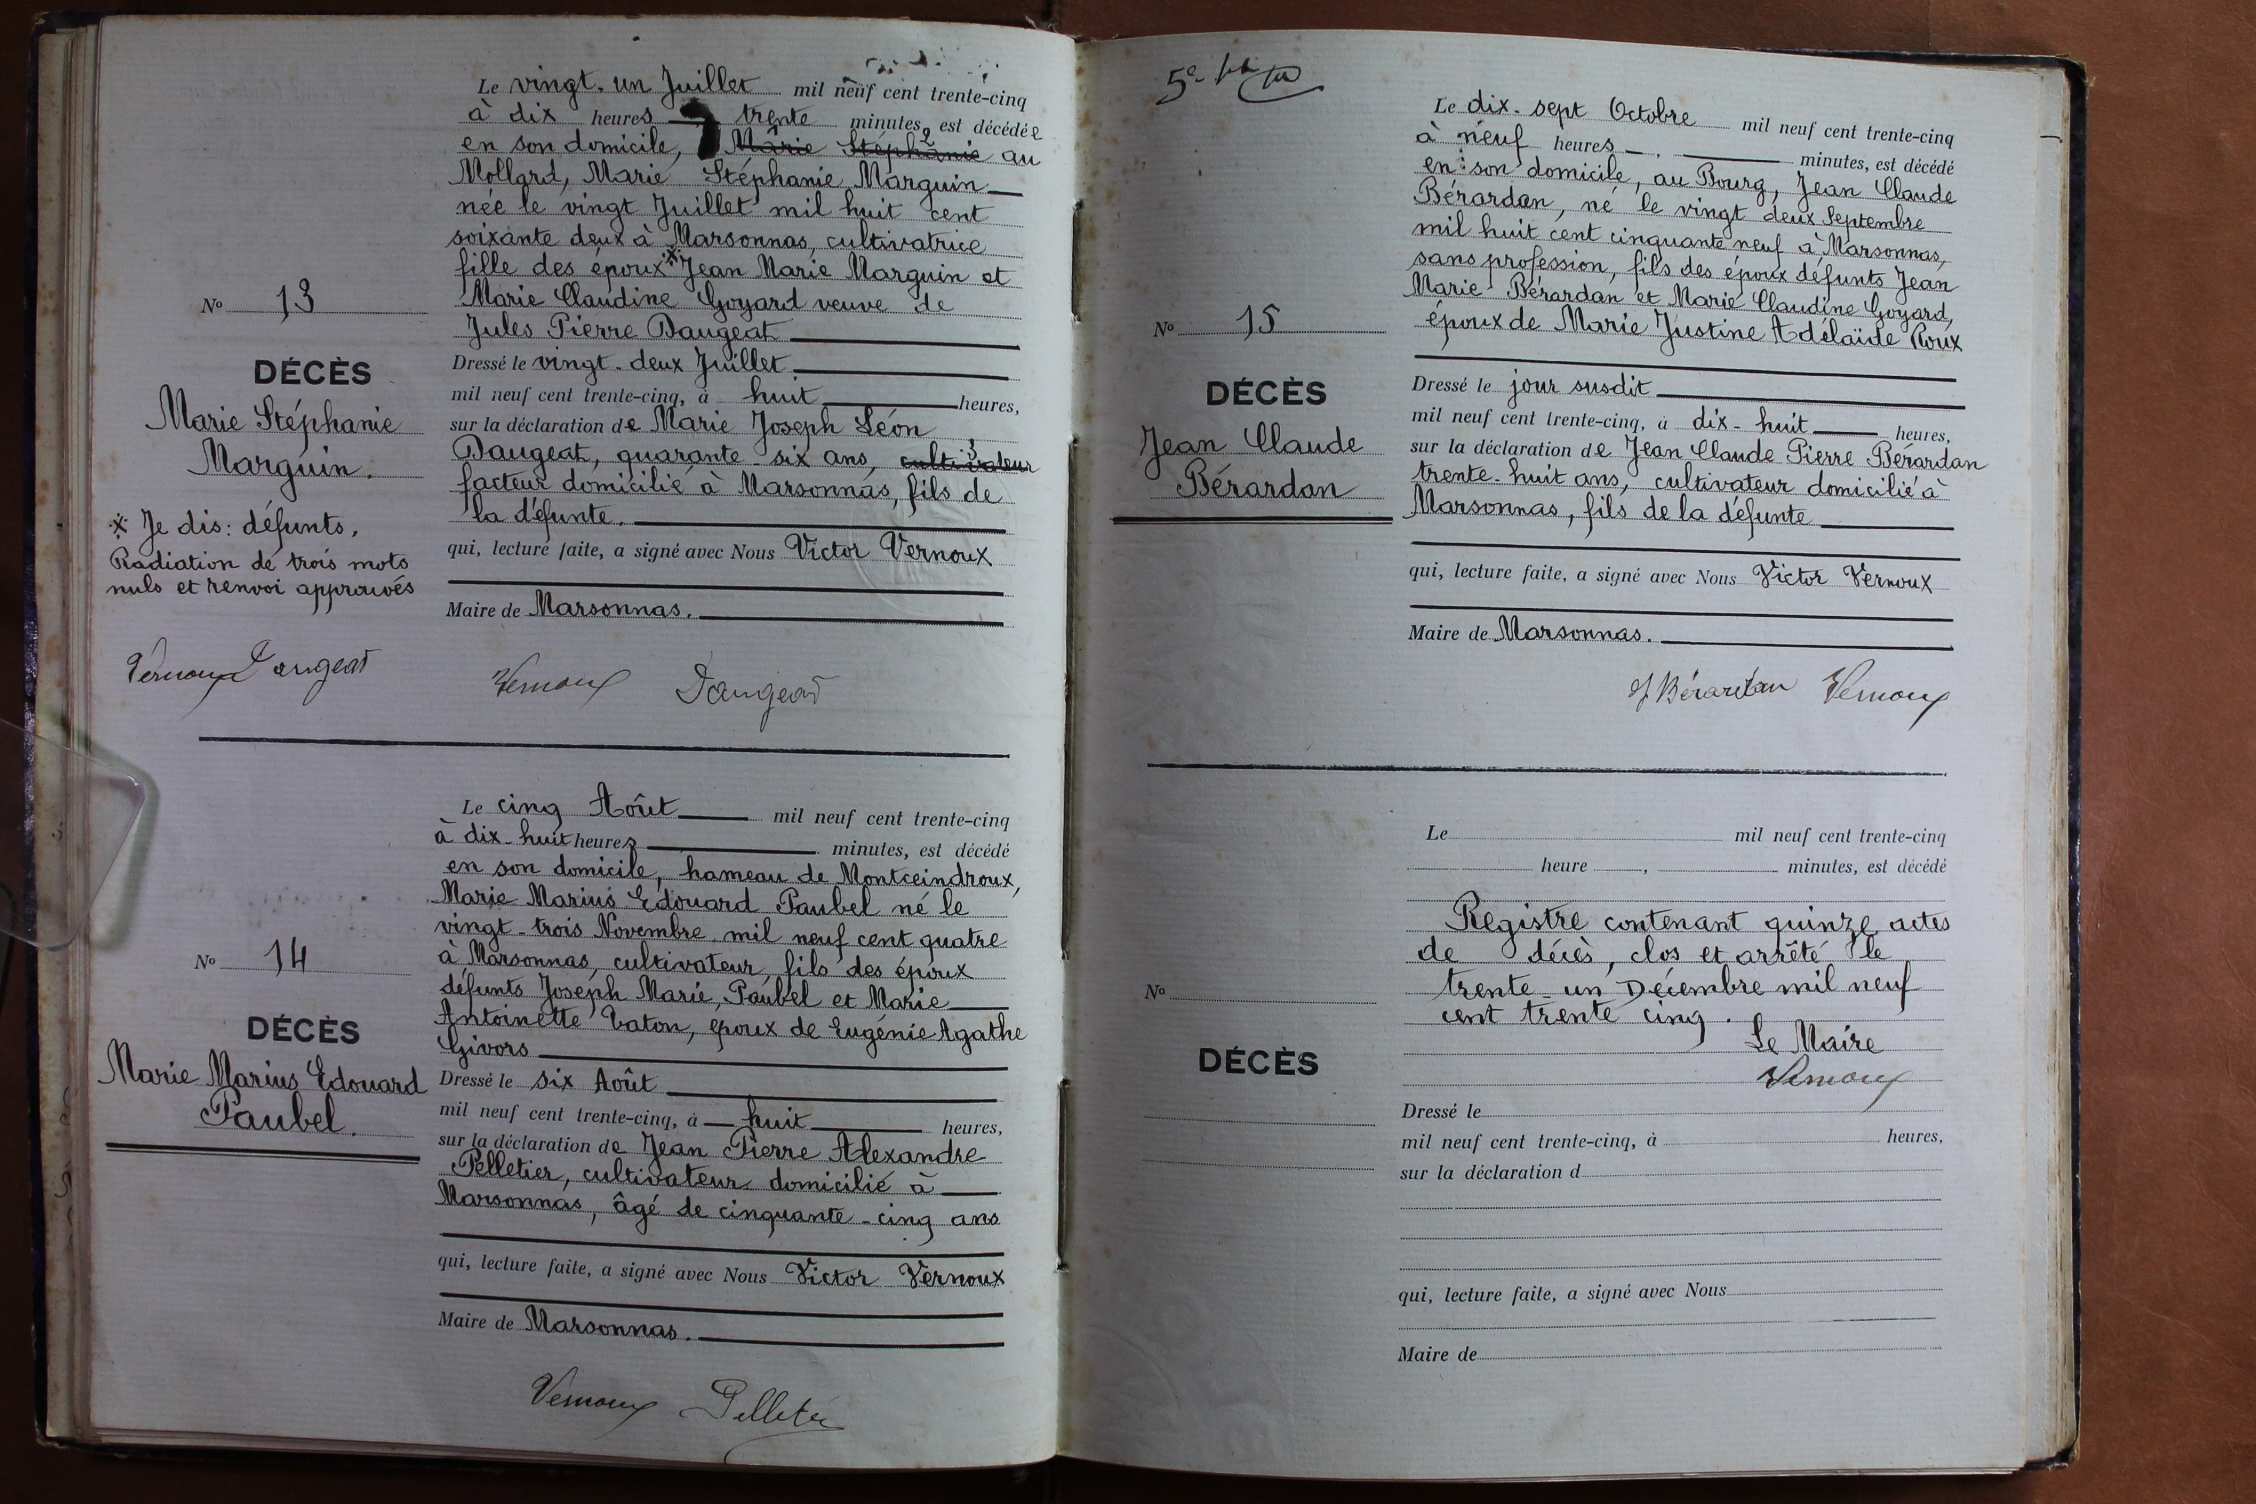 Le vingt-un Juillet mil neuf cent trente-cinq
à dix heures trente minutes, est décédée
en son domicile, Marie Stéphanie au
Mollard, Marie Stéphanie Marguin
née le vingt Juillet mil huit cent
soixante deux à Marsonnas, cultivatrice
fille des époux * Jean Marie Marguin et
Marie Claudine Goyard veuve de
Jules Pierre Daugeat
Dressé le vingt-deux Juillet
mil neuf cent trente-cinq, à huit heures,
sur la déclaration de Marie Joseph Léon
Daugeat, quarante-six ans, cultivateur
facteur domicilié à Marsonnas, fils de
la défunte.
qui, lecture faite, a signé avec Nous Victor Vernoux
Maire de Marsonnas.
Vernoux Daugeat
No 13
DÉCÈS
Marie Stéphanie
Marguin.
* Je dis: défunts.
Radiation de trois mots
nuls et renvoi approuvés
Vernoux Daugeat
Le cinq Août mil neuf cent trente-cinq
à dix-huit heures minutes, est décédé
en son domicile, hameau de Montceindroux,
Marie Marius Edouard Paubel né le
vingt-trois Novembre mil neuf cent quatre
à Marsonnas, cultivateur, fils des époux
défunts Joseph Marie Paubel et Marie
Antoinette Vaton, époux de Eugénie Agathe
Givors
Dressé le six Août
mil neuf cent trente-cinq, à huit heures,
sur la déclaration de Jean Pierre Alexandre
Pelletier, cultivateur domicilié à
Marsonnas, âgé de cinquante-cinq ans
qui, lecture faite, a signé avec Nous Victor Vernoux
Maire de Marsonnas.
Vernoux Pelletier
No 14
DÉCÈS
Marie Marius Edouard
Paubel.
5e
Le dix-sept Octobre mil neuf cent trente-cinq
à neuf heures minutes, est décédé
en son domicile, au Bourg, Jean Claude
Bérardan, né le vingt deux Septembre
mil huit cent cinquante neuf à Marsonnas,
sans profession, fils des époux défunts Jean
Marie Bérardan et Marie Claudine Goyard,
époux de Marie Justine Adélaïde Roux
Dressé le jour susdit
mil neuf cent trente-cinq, à dix-huit heures,
sur la déclaration de Jean Claude Pierre Bérardan
trente-huit ans, cultivateur domicilié à
Marsonnas, fils de la défunte
qui, lecture faite, a signé avec Nous Victor Vernoux
Maire de Marsonnas.
Bérardan Vernoux
No 15
DÉCÈS
Jean Claude
Bérardan
Le mil neuf cent trente-cinq
heure , minutes, est décédé
Registre contenant quinze actes
de décès, clos et arrêté le
trente-un Décembre mil neuf
cent trente cinq.
Le Maire
Vernoux
Dressé le
mil neuf cent trente-cinq, à heures,
sur la déclaration d
qui, lecture faite, a signé avec Nous
Maire de
No
DÉCÈS